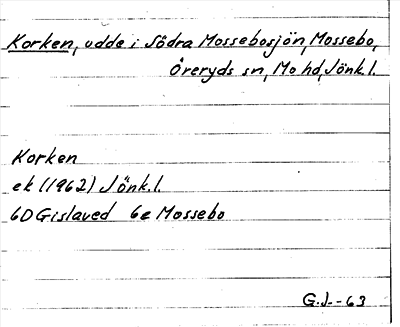 Korken, udde i Södra Mossebosjön, Mossebo,
Öreryds sn, Mo hd, Jönk.l.
Korken
ek (1962) Jönk.l.
6D Gislaved 6e Mossebo
G.J. -63